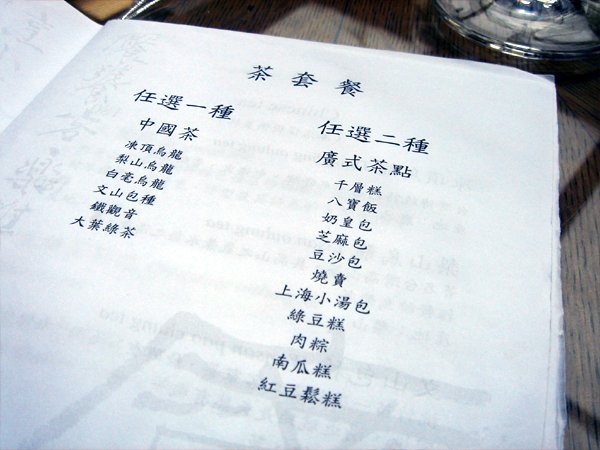 茶套餐
任選一種
中國茶
凍頂烏龍
梨山烏龍
白毫烏龍
文山包種
鐵觀音
大葉綠茶
任選二種
廣式茶點
千層糕
八寶飯
奶皇包
芝麻包
豆沙包
燒賣
上海小湯包
綠豆糕
肉粽
南瓜糕
紅豆鬆糕